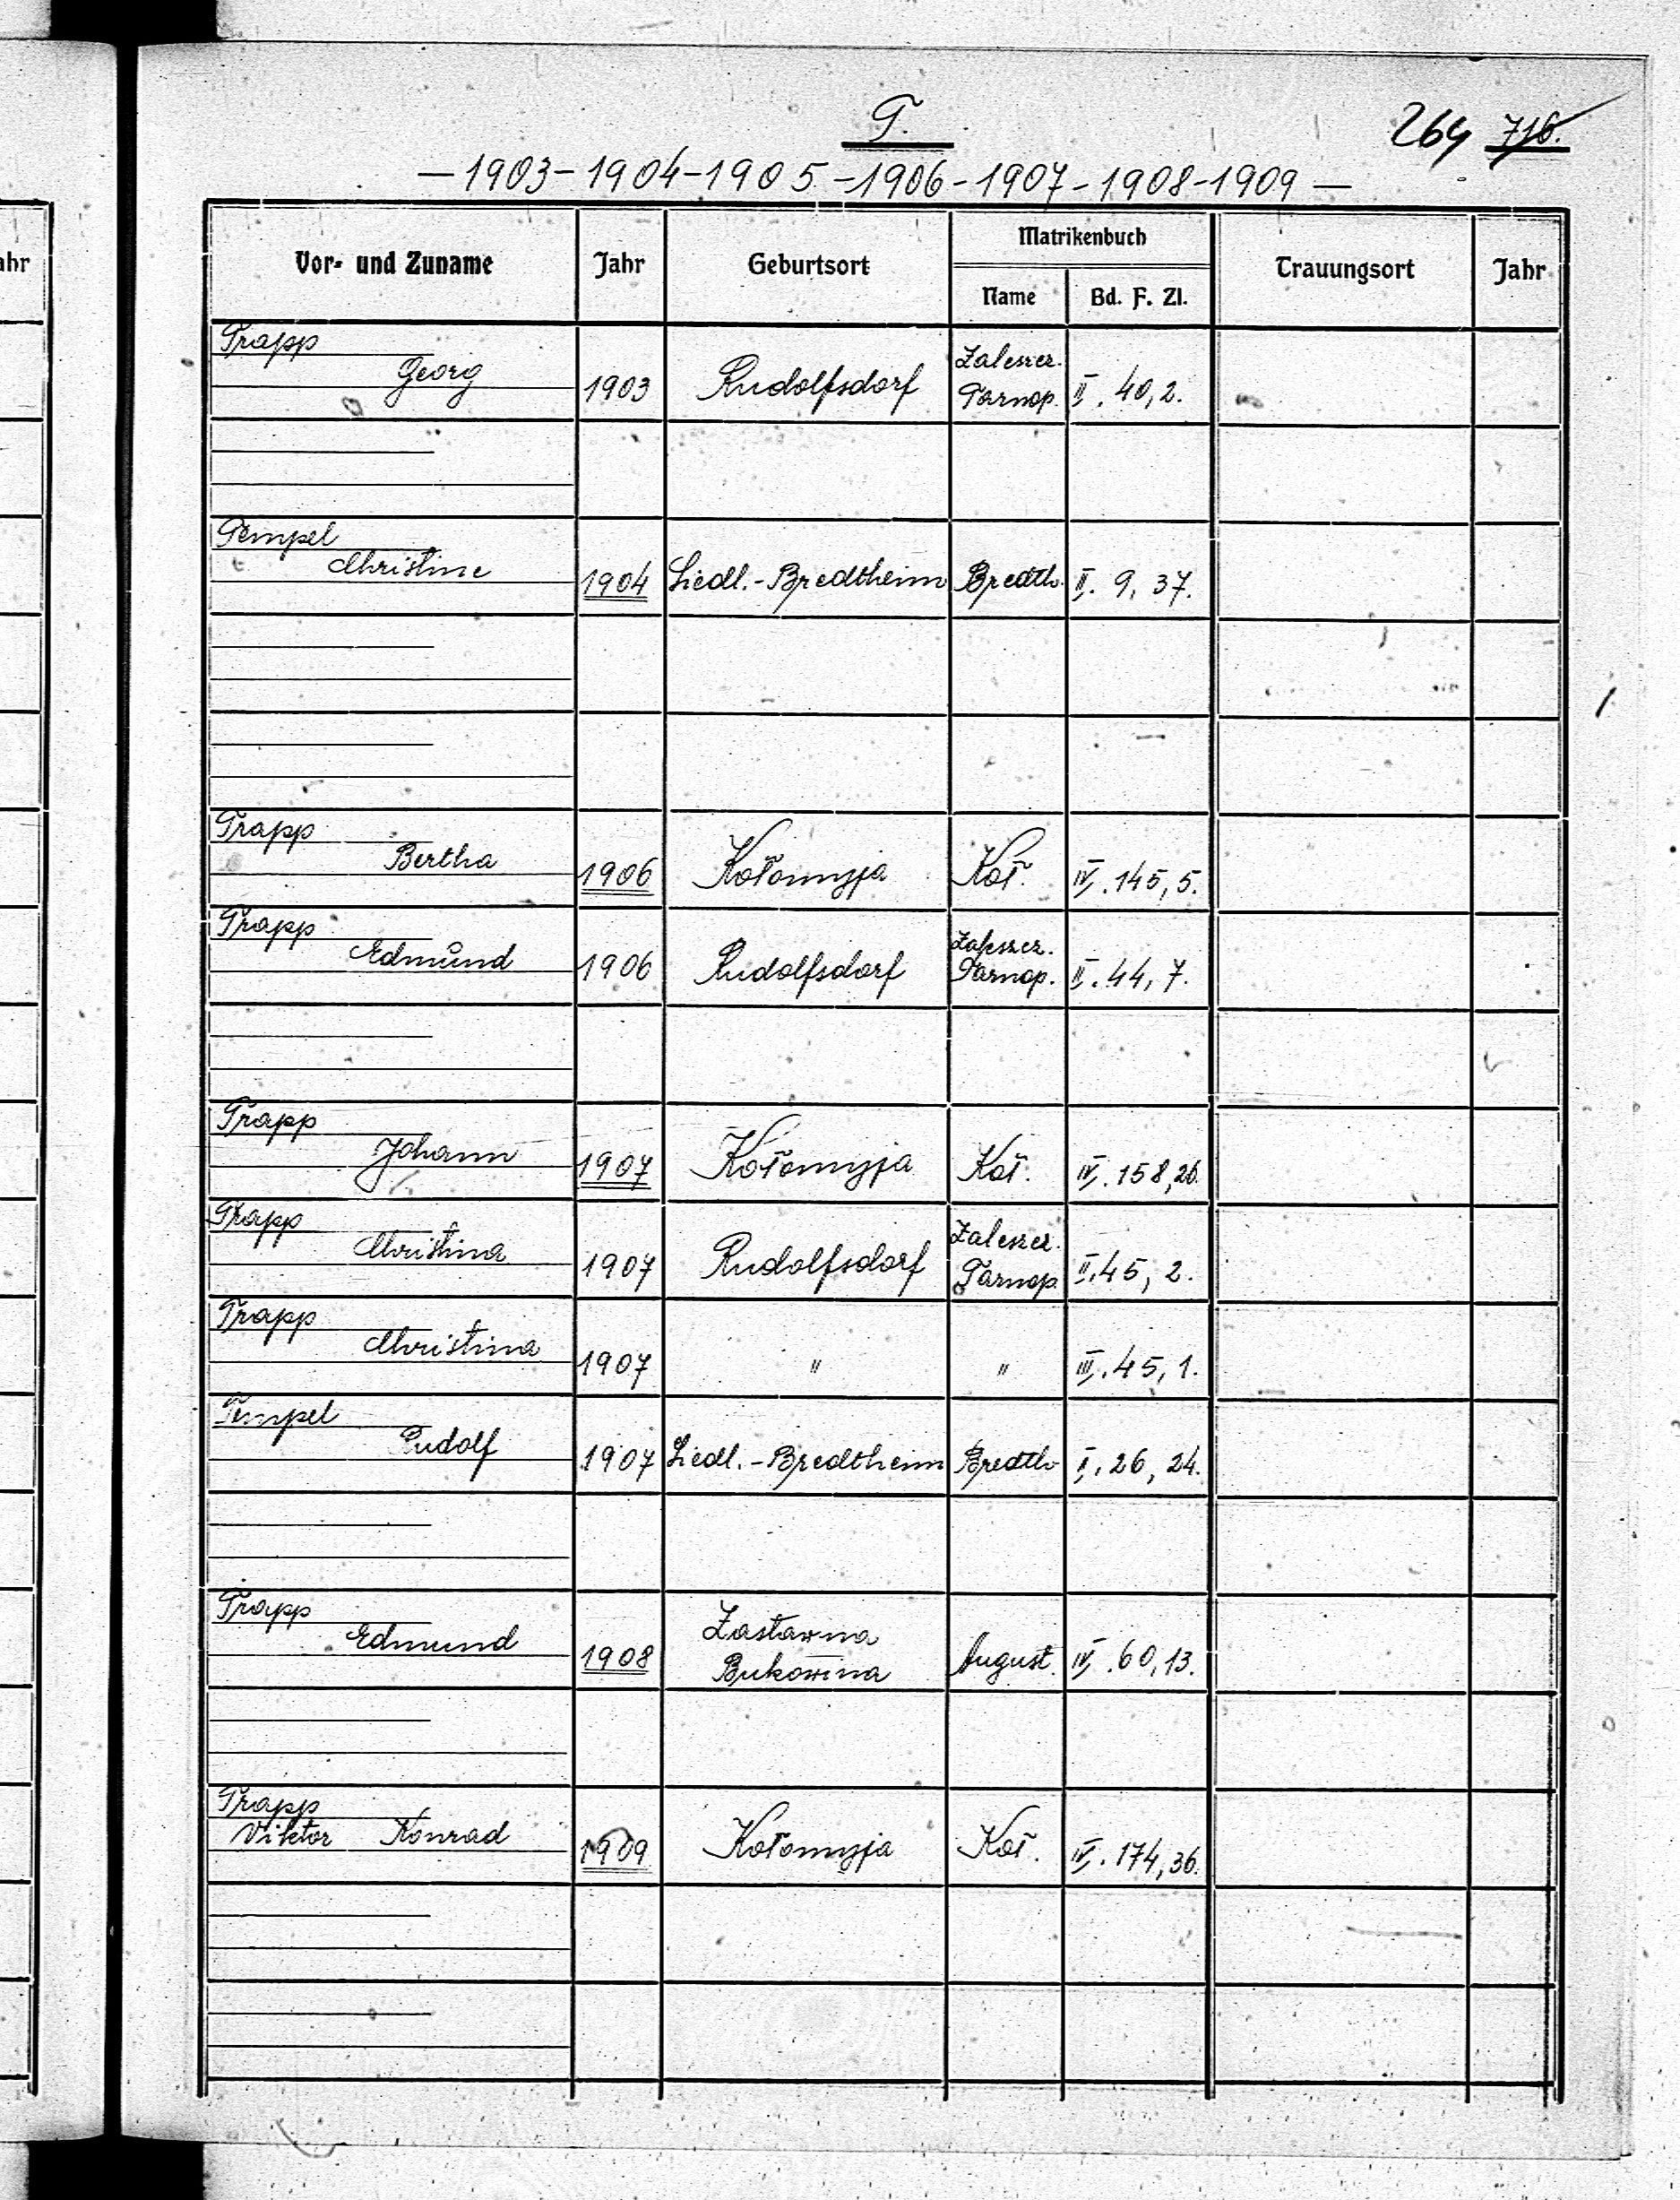 T.
264 716.
— 1903 - 1904 - 1905 - 1906 - 1907 - 1908 - 1909 —
ahr
Vor- und Zuname Jahr Geburtsort Matrikenbuch Trauungsort Jahr
Name Bd. F. Zl.
Trapp
Georg 1903 Rudolfsdorf Zaleszcz. Tarnop. II. 40, 2.
Tempel
Christine 1904 Siedl.-Bredtheim Bredth. II. 9, 37.
Trapp
Bertha 1906 Kołomyja Koł. IV. 145, 5.
Trapp
Edmund 1906 Rudolfsdorf Zaleszcz. Tarnop. II. 44, 7.
Trapp
Johann 1907 Kołomyja Koł. IV. 158, 26.
Trapp
Christina 1907 Rudolfsdorf Zaleszcz. Tarnop. II. 45, 2.
Trapp
Christina 1907 " " III. 45, 1.
Tempel
Rudolf 1907 Siedl.-Bredtheim Bredth. I. 26, 24.
Trapp
Edmund 1908 Zastawna Bukowina August. IV. 60, 13.
Trapp
Viktor Konrad 1909 Kołomyja Koł. IV. 174, 36.